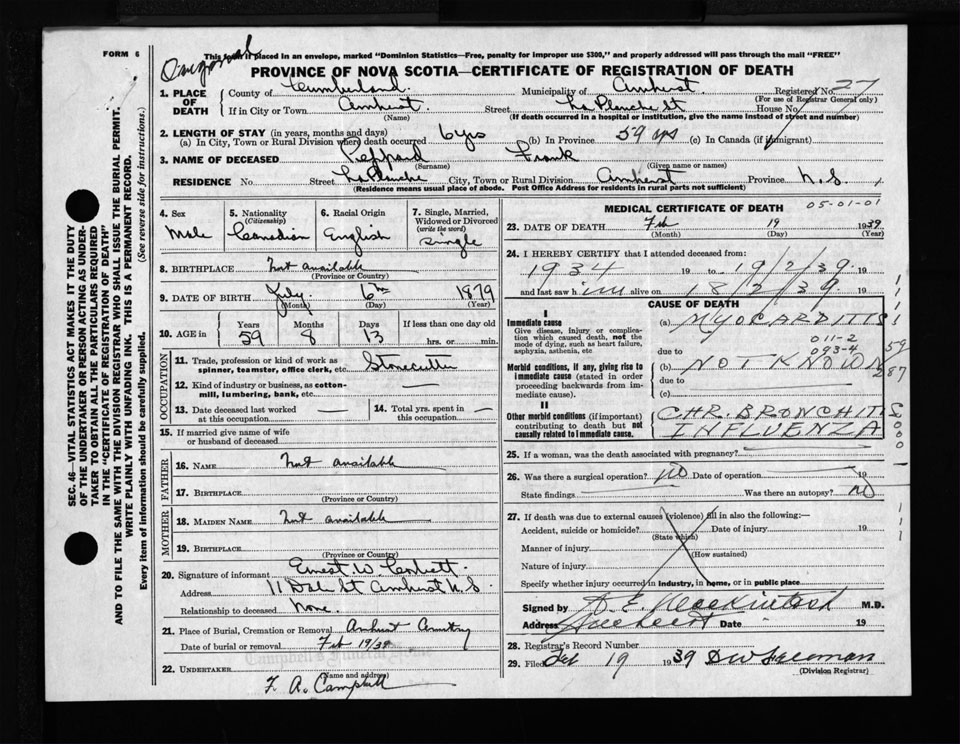 FORM 6
Original
This form if placed in an envelope, marked "Dominion Statistics—Free, penalty for improper use $300," and properly addressed will pass through the mail "FREE"
PROVINCE OF NOVA SCOTIA—CERTIFICATE OF REGISTRATION OF DEATH
1. PLACE OF DEATH County of Cumberland Municipality of Amherst Registered No. 27
(For use of Registrar General only)
If in City or Town Amherst Street La Planche St House No.
(Name) (If death occurred in a hospital or institution, give the name instead of street and number)
2. LENGTH OF STAY (in years, months and days)
(a) In City, Town or Rural Division where death occurred 6 yrs (b) In Province 59 yrs (c) In Canada (if immigrant)
3. NAME OF DECEASED Peppard Frank
(Surname) (Given name or names)
RESIDENCE No. Street La Planche City, Town or Rural Division Amherst Province N.S.
(Residence means usual place of abode. Post Office Address for residents in rural parts not sufficient)
4. Sex
Male
5. Nationality
(Citizenship)
Canadian
6. Racial Origin
English
7. Single, Married, Widowed or Divorced
(write the word)
Single
8. BIRTHPLACE Not available
(Province or Country)
9. DATE OF BIRTH July 6th 1879
(Month) (Day) (Year)
10. AGE in Years Months Days If less than one day old
59 8 13 hrs. or min.
OCCUPATION
11. Trade, profession or kind of work as spinner, teamster, office clerk, etc. Stonecutter
12. Kind of industry or business, as cotton-mill, lumbering, bank, etc. —
13. Date deceased last worked at this occupation —
14. Total yrs. spent in this occupation —
15. If married give name of wife or husband of deceased
FATHER
16. NAME Not available
17. BIRTHPLACE
(Province or Country)
MOTHER
18. MAIDEN NAME Not available
19. BIRTHPLACE
(Province or Country)
20. Signature of informant Ernest W. Corbett
Address 11 Dale St Amherst N.S.
Relationship to deceased None.
21. Place of Burial, Cremation or Removal Amherst Cemetery
Date of burial or removal Feb 19/39
Campbell's Funeral Home
22. UNDERTAKER
(Name and address)
F. A. Campbell
MEDICAL CERTIFICATE OF DEATH
05-01-01
23. DATE OF DEATH Feb 19 1939
(Month) (Day) (Year)
24. I HEREBY CERTIFY that I attended deceased from
1934 19 to 19/2/39 19
and last saw him alive on 18/2/39 19
CAUSE OF DEATH
I
Immediate cause
Give disease, injury or complication which caused death, not the mode of dying, such as heart failure, asphyxia, asthenia, etc
(a) MYOCARDITIS
due to
011-2
093-4
59
287
Morbid conditions, if any, giving rise to immediate cause (stated in order proceeding backwards from immediate cause).
(b) NOT KNOWN
due to
(c)
II
Other morbid conditions (if important) contributing to death but not causally related to immediate cause.
CHR. BRONCHITIS
INFLUENZA
25. If a woman, was the death associated with pregnancy?
26. Was there a surgical operation? NO Date of operation 19
State findings Was there an autopsy? NO
27. If death was due to external causes (violence) fill in also the following:—
Accident, suicide or homicide? Date of injury 19
(State which)
Manner of injury
(How sustained)
Nature of injury
Specify whether injury occurred in industry, in home, or in public place
Signed by D. E. Mackintosh M.D.
Address Amherst Date 19
28. Registrar's Record Number
29. Filed Feb 19 1939
(Division Registrar)
SEC. 46—VITAL STATISTICS ACT MAKES IT THE DUTY
OF THE UNDERTAKER OR PERSON ACTING AS UNDERTAKER TO OBTAIN ALL THE PARTICULARS REQUIRED
IN THE "CERTIFICATE OF REGISTRATION OF DEATH"
AND TO FILE THE SAME WITH THE DIVISION REGISTRAR WHO SHALL ISSUE THE BURIAL PERMIT.
WRITE PLAINLY WITH UNFADING INK. THIS IS A PERMANENT RECORD.
Every item of information should be carefully supplied. (See reverse side for instructions.)